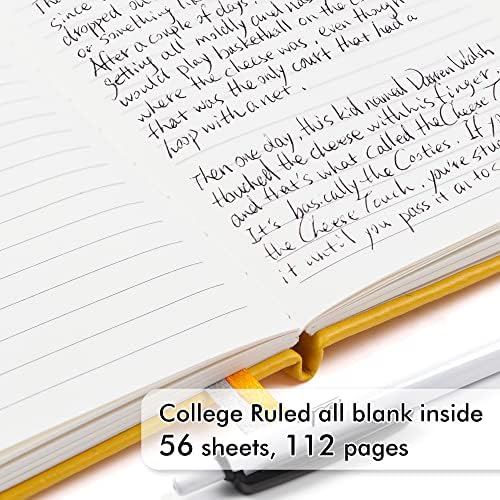 since
dropped ou
or something li
After a couple of days,
getting all moldly and nas
would play basketball on the c
where the cheese was even though
that was the only court that had a
hoop with a net.
Then one day, this kid named Darren Walsh
touched the cheese with his finger
and that's what called the Cheese T
It's basically the Cooties. If y
the Cheese Touch, you're stu
it until you pass it on to s
College Ruled all blank inside
56 sheets, 112 pages